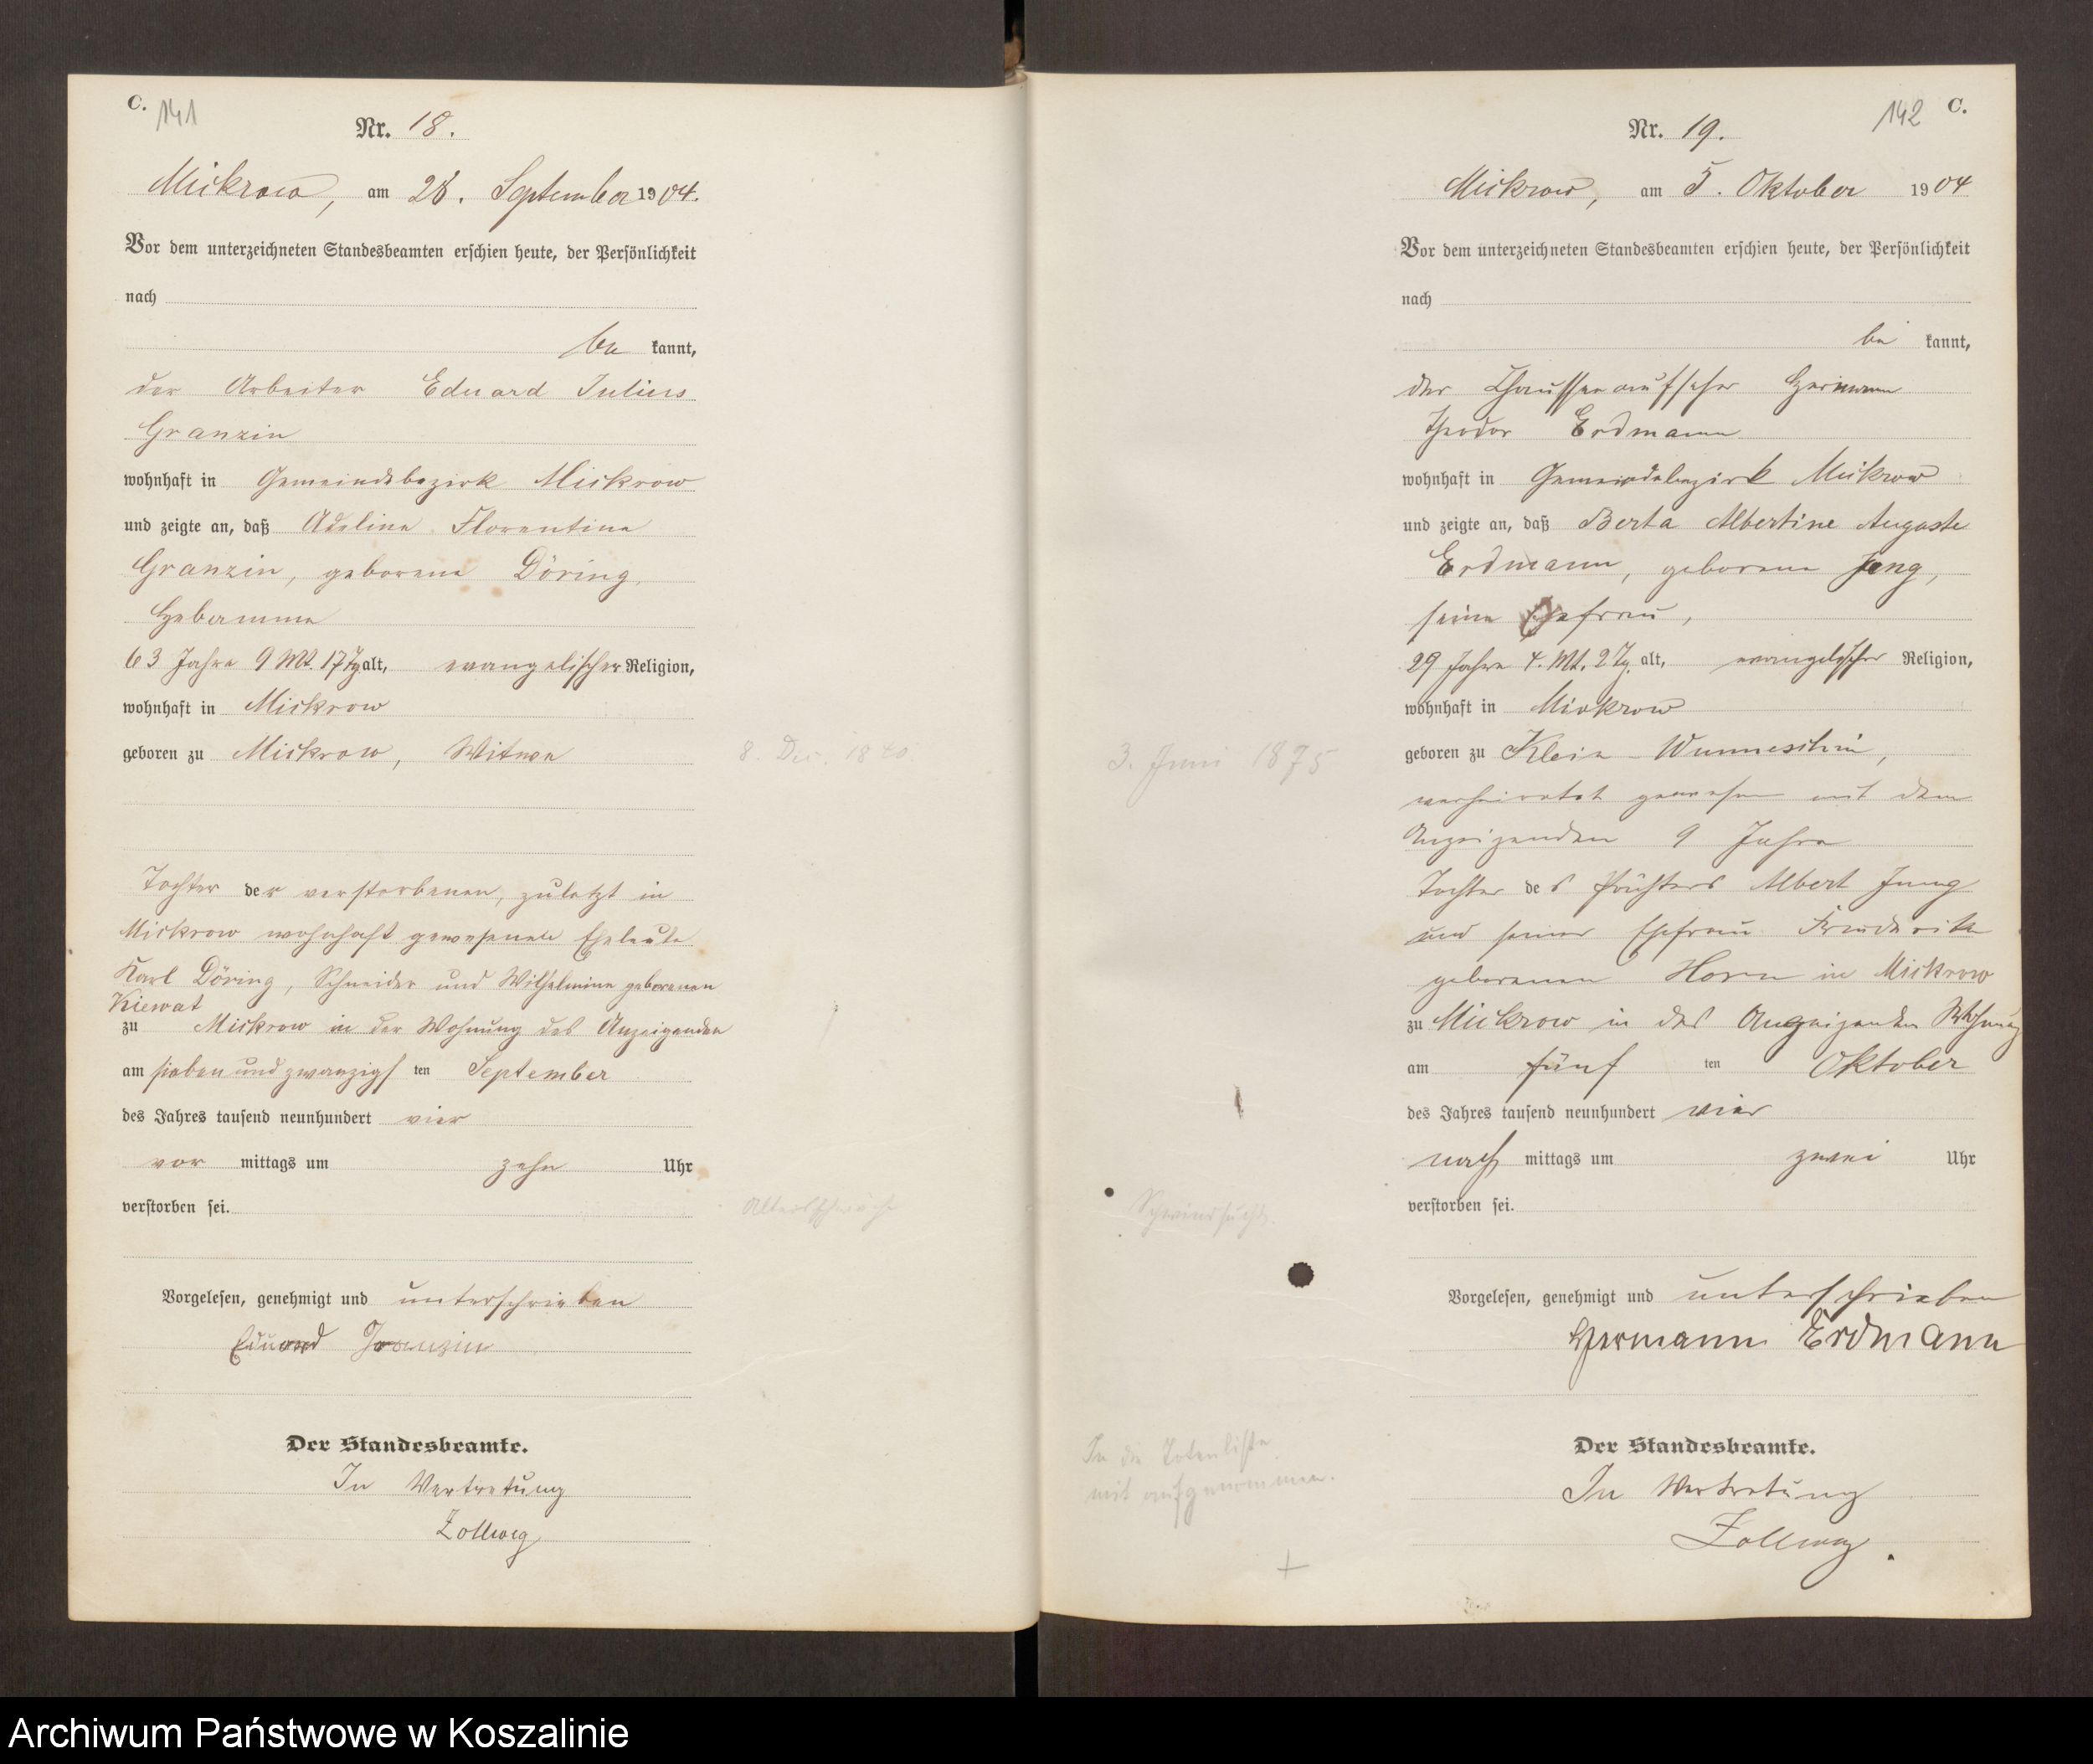 C.
141
Nr. 18.
Mickrow, am 28. September 1904.
Vor dem unterzeichneten Standesbeamten erschien heute, der Persönlichkeit
nach
be kannt,
der Arbeiter Eduard Julius
Granzin
wohnhaft in Gemeindebezirk Mickrow
und zeigte an, daß Adeline Florentine
Granzin, geborene Döring,
Hebamme
63 Jahre 9 Mt. 17 Tg alt, evangelischer Religion,
wohnhaft in Mickrow
geboren zu Mickrow, Witwe
8. Dez. 1840.
Tochter der verstorbenen, zuletzt in
Mickrow wohnhaft gewesenen Eheleute
Karl Döring, Schneider und Wilhelmine geborenen
Kiewat
zu Mickrow in der Wohnung des Anzeigenden
am sieben und zwanzigs ten September
des Jahres tausend neunhundert vier
vor mittags um zehn Uhr
verstorben sei.
Altersschwäche
Vorgelesen, genehmigt und unterschrieben
Eduard Granzin
Der Standesbeamte.
In Vertretung
Zollweg
142
C.
Nr. 19.
Mickrow, am 5. Oktober 1904
Vor dem unterzeichneten Standesbeamten erschien heute, der Persönlichkeit
nach
be kannt,
der Chausseeaufseher Hermann
Theodor Erdmann
wohnhaft in Gemeindebezirk Mickrow
und zeigte an, daß Berta Albertine Auguste
Erdmann, geborene Jung,
seine Ehefrau,
29 Jahre 4. Mt. 2 Tg. alt, evangelischer Religion,
wohnhaft in Mickrow
geboren zu Klein-Wunneschin,
3. Juni 1875
verheiratet gewesen mit dem
Anzeigenden 9 Jahre
Tochter des Pächters Albert Jung
und seiner Ehefrau Friederike
geborenen Horn in Mickrow
zu Mickrow in des Anzeigenden Wohnung
am fünf ten Oktober
des Jahres tausend neunhundert vier
nach mittags um zwei Uhr
verstorben sei.
Schwindsucht.
Vorgelesen, genehmigt und unterschrieben
Hermann Erdmann
Der Standesbeamte.
In Vertretung
Zollweg.
In die Totenliste
mit aufgenommen.
Archiwum Państwowe w Koszalinie